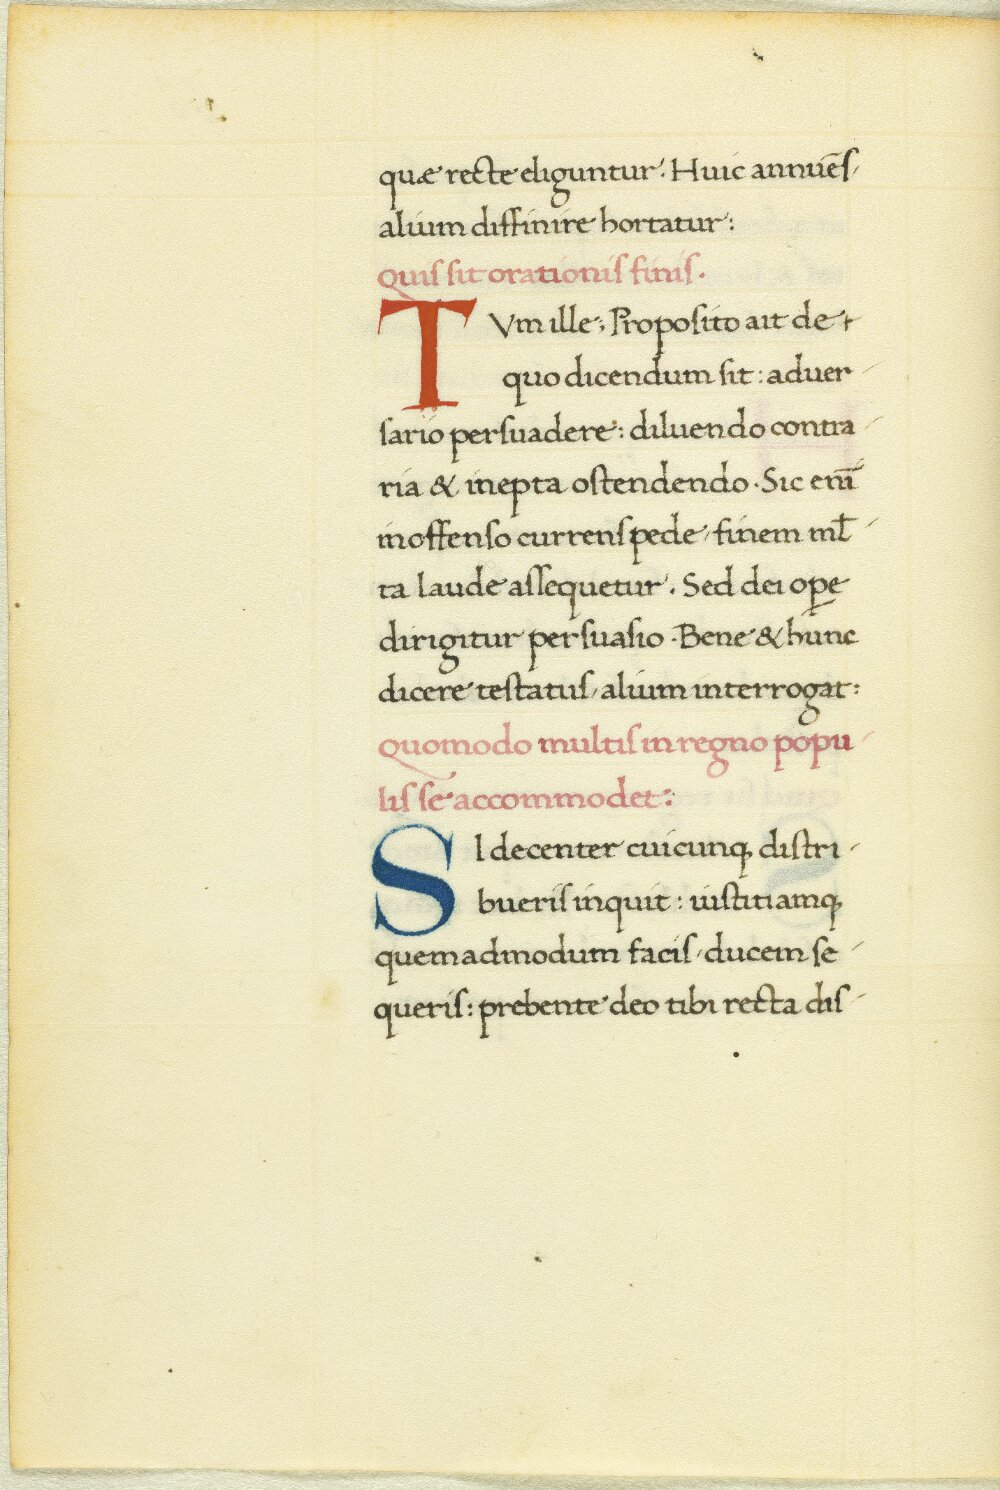 quæ recte eliguntur: Huic annuēs,
alium diffinire hortatur:
Quis sit orationis finis.
TVm ille: Proposito ait de
quo dicendum sit: aduer-
sario persuadere: diluendo contra-
ria & inepta ostendendo. Sic eni̅
inoffenso currens pede, finem ml̅-
ta laude assequetur. Sed dei ope̱
dirigitur persuasio. Bene & hunc
dicere testatus, alium interrogat:
Quomodo multis in regno popu-
lis se accommodet:
SI decenter cuicunq; distri-
bueris inquit: iustitiamq;
quemadmodum facis, ducem se-
queris: prebente deo tibi recta dis-